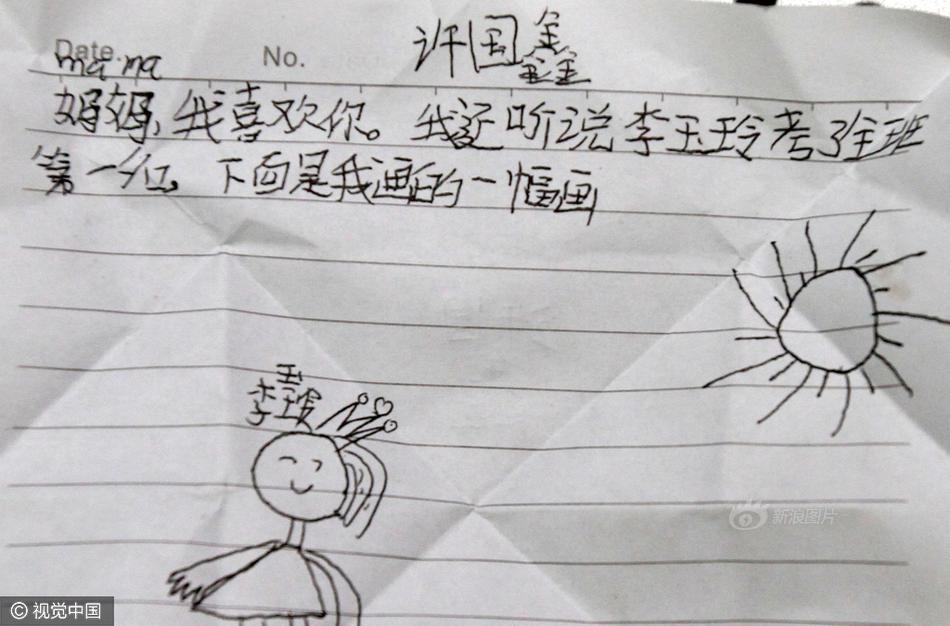 许国鑫
Date.
No.
ma ma
妈妈,我喜欢你。我还听说李玉玲考了全班
第一位。下面是我画的一幅画
李玉
新浪图片
© 视觉中国